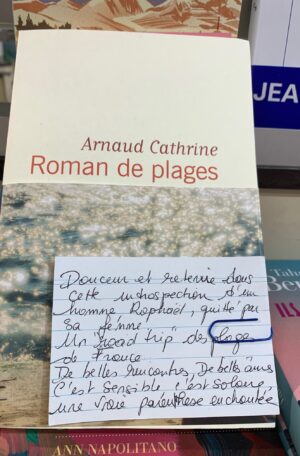 Arnaud Cathrine
Roman de plages
JEA
Douceur et retenue dans
cette introspection d'un
homme Raphaël, quitté par
sa femme.
Un "road trip" des plages
de France.
De belles rencontres, De belles âmes
C'est sensible c'est solaire,
une vraie parenthèse enchantée
ANN NAPOLITANO
ILS